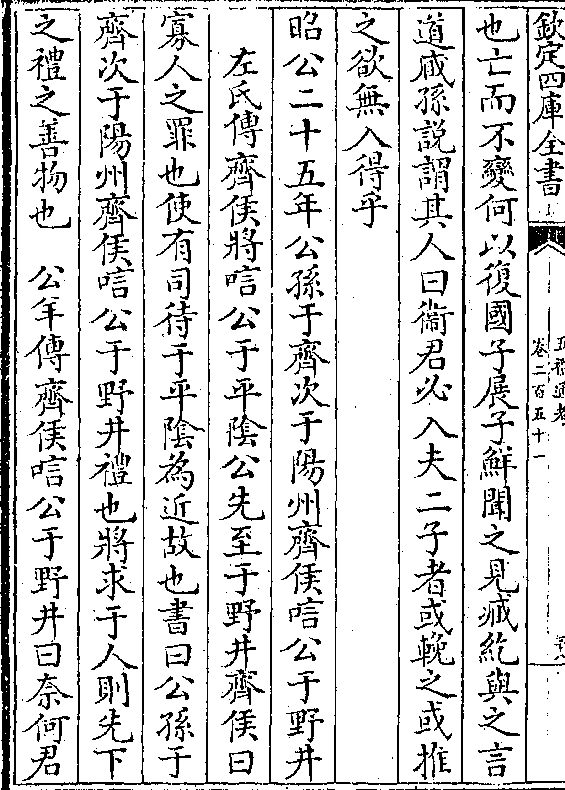 欽定四庫全書
五禮通考
卷二百五十一
也亡而不變何以復國子展子鮮聞之見臧紇與之言
道臧孫說謂其人曰衞君必入夫二子者或輓之或推
之欲無入得乎
昭公二十五年公孫于齊次于陽州齊侯唁公于野井
左氏傳齊侯將唁公于平隂公先至于野井齊侯曰
寡人之罪也使有司待于平隂為近故也書曰公孫于
齊次于陽州齊侯唁公于野井禮也將求于人則先下
之禮之善物也　公羊傳齊侯唁公于野井曰奈何君